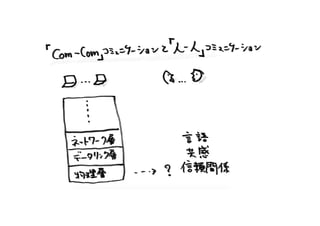 「Com-Com」コミュニケーションと「人-人」コミュニケーション
ネットワーク層
データリンク層
物理層 ---> ?
言語
共感
信頼関係